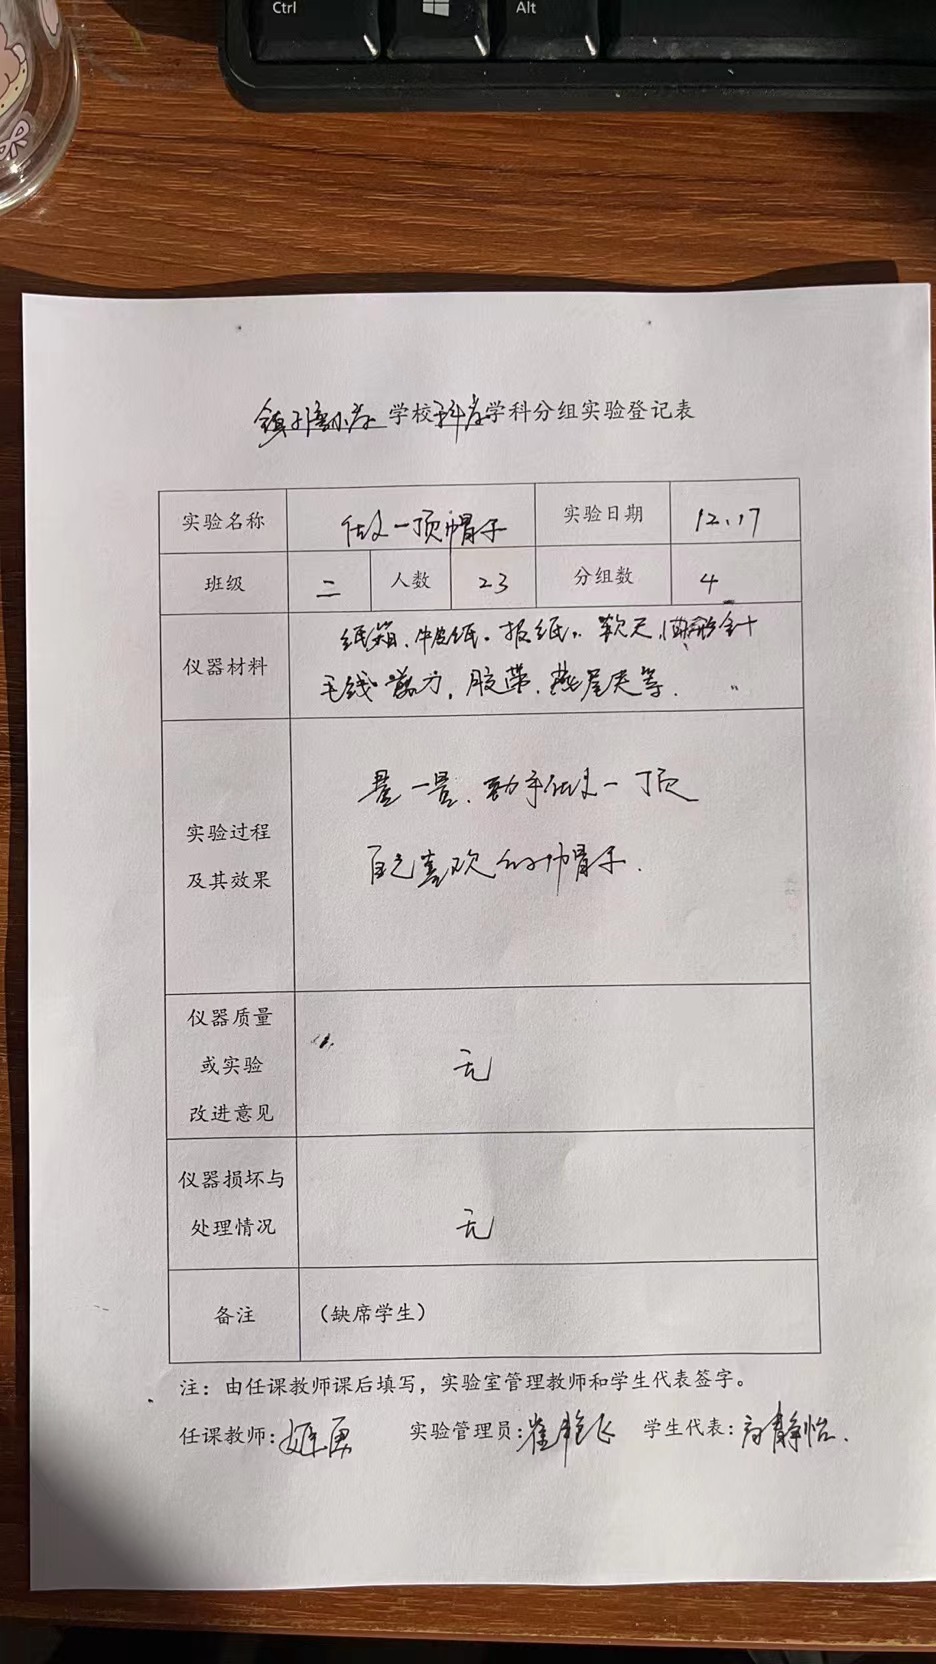 Ctrl
Alt
学校科学学科分组实验登记表
实验名称 做一顶帽子 实验日期 12.17
班级 二 人数 23 分组数 4
纸箱、牛皮纸。报纸。软尺,回形针
仪器材料
毛线 剪刀,胶带.燕尾夹等.
量一量.动手做一顶
实验过程
及其效果
自己喜欢的帽子.
仪器质量
或实验
无
改进意见
仪器损坏与
处理情况
无
备注 （缺席学生）
注：由任课教师课后填写，实验室管理教师和学生代表签字。
任课教师: 实验管理员:崔艳飞 学生代表:静怡.